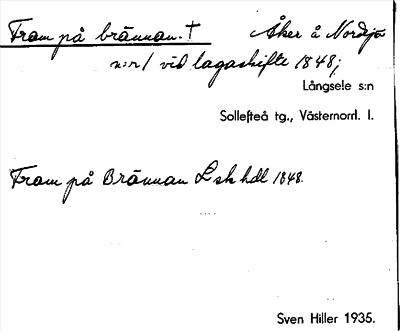 Fram på brännan. † Åker å Nordsjö
n:r 1 vid lagaskifte 1848;
Långsele s:n
Sollefteå tg., Västernorrl. l.
Fram på Brännan Lsk hdl 1848.
Sven Hiller 1935.